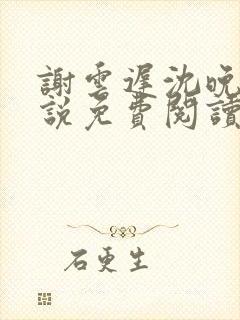 謝雲遲沈晚
說免費閱讀
石更生